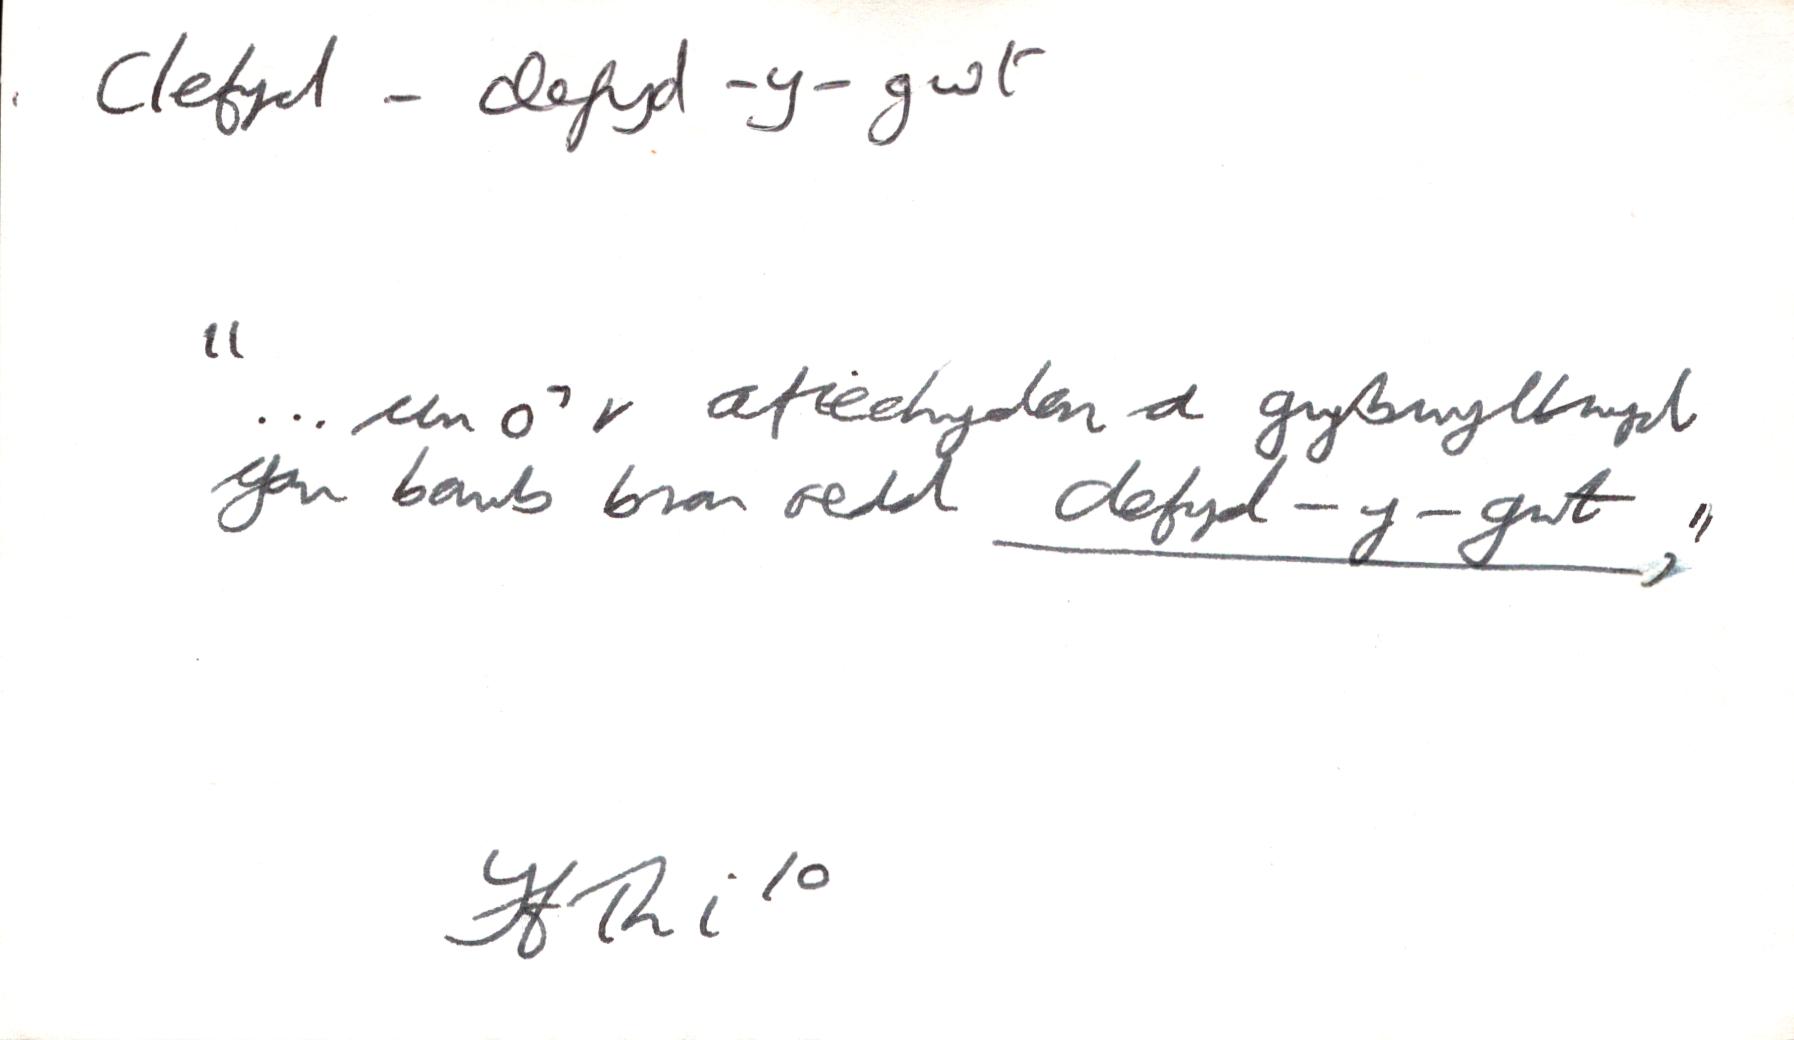 Clefyd - clefyd-y-gwt
"
... un o'r afiechydon a grybwyllwyd
gan bawb bron oedd clefyd-y-gwt,"